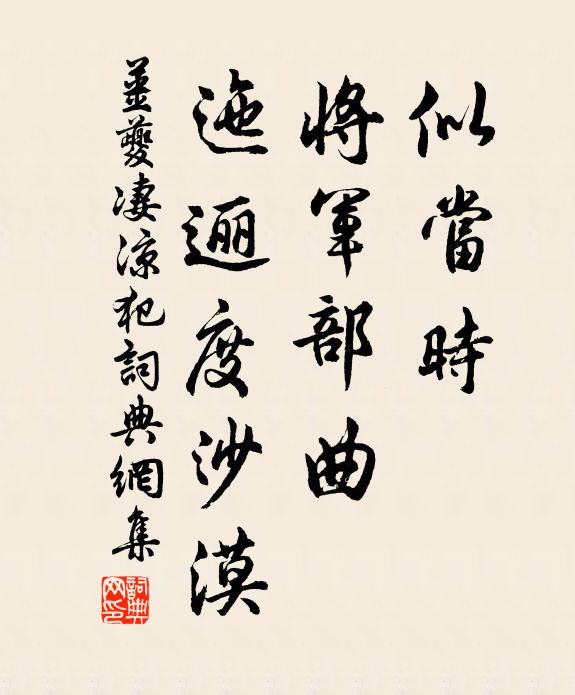 似當時
將軍部曲
迤逦度沙漠
姜夔凄涼犯詞典網集
詞典網印